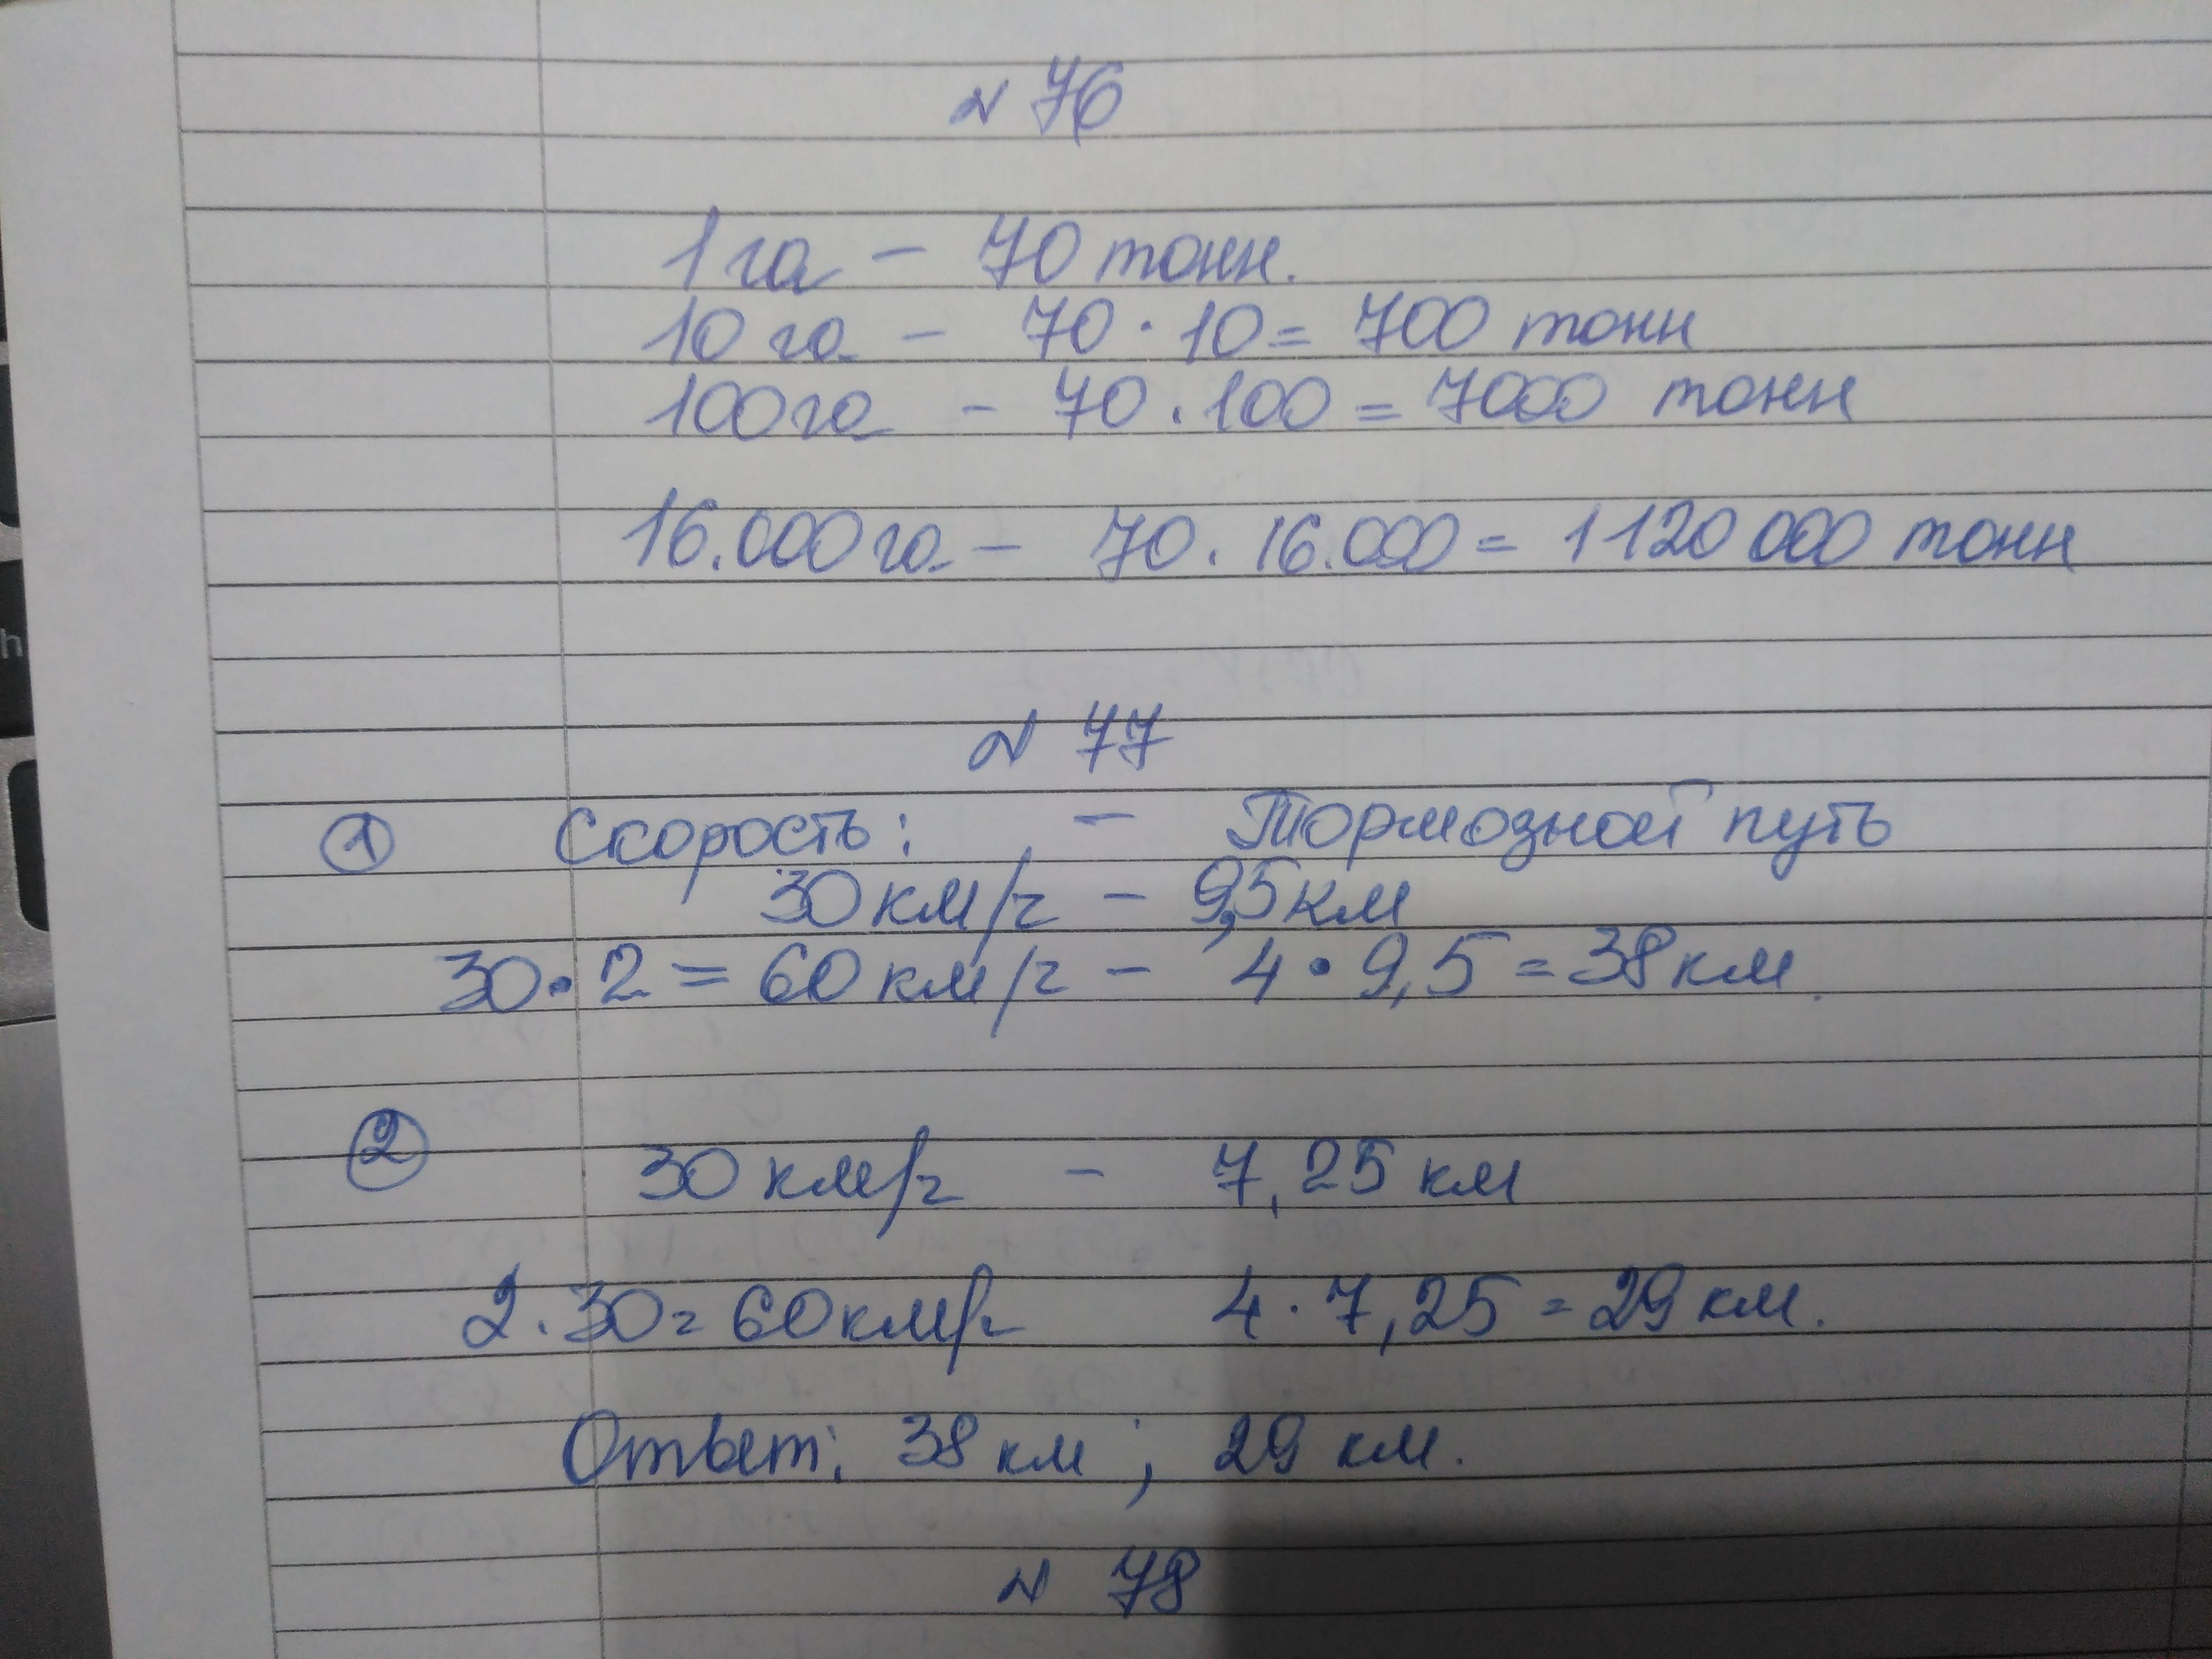 № 76
1 га – 70 тонн.
10 га – 70 · 10 = 700 тонн
100 га – 70 · 100 = 7000 тонн
16.000 га – 70 · 16.000 = 1120 000 тонн
№ 77
① Скорость: – Тормозной путь
30 км/ч – 9,5 км
30 · 2 = 60 км/ч – 4 · 9,5 = 38 км.
② 30 км/ч – 7,25 км
2 · 30 = 60 км/ч 4 · 7,25 = 29 км.
Ответ: 38 км ; 29 км.
№ 78